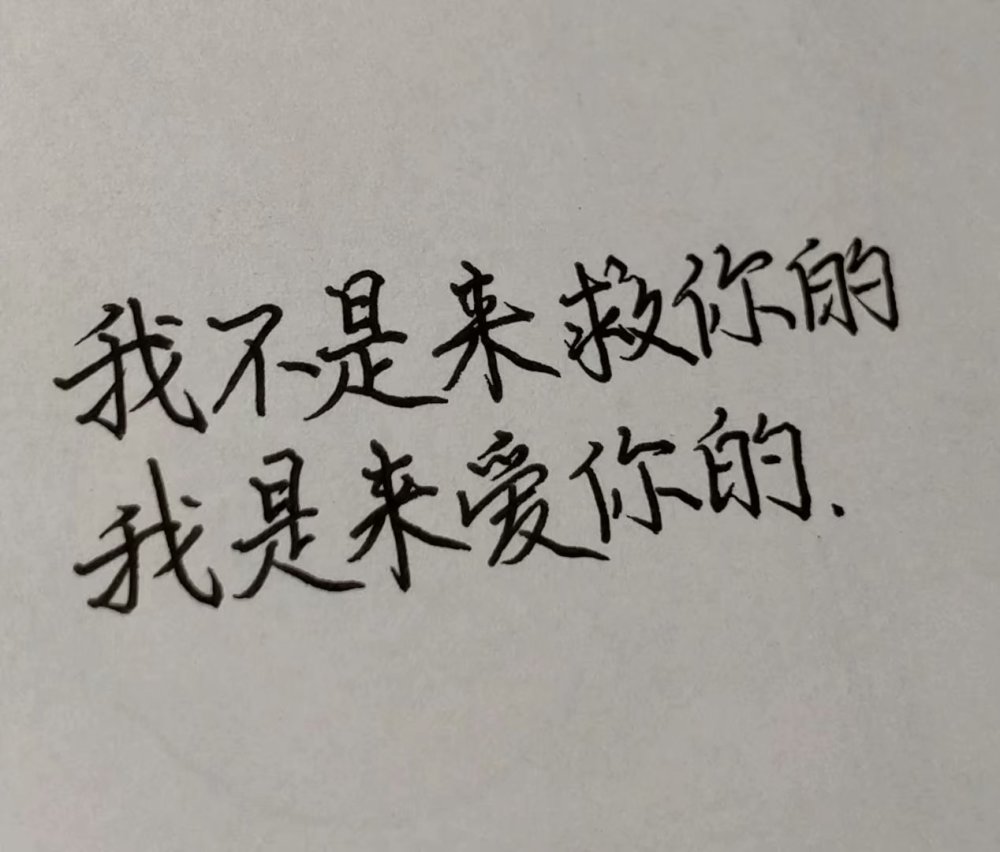 我不是来救你的
我是来爱你的.